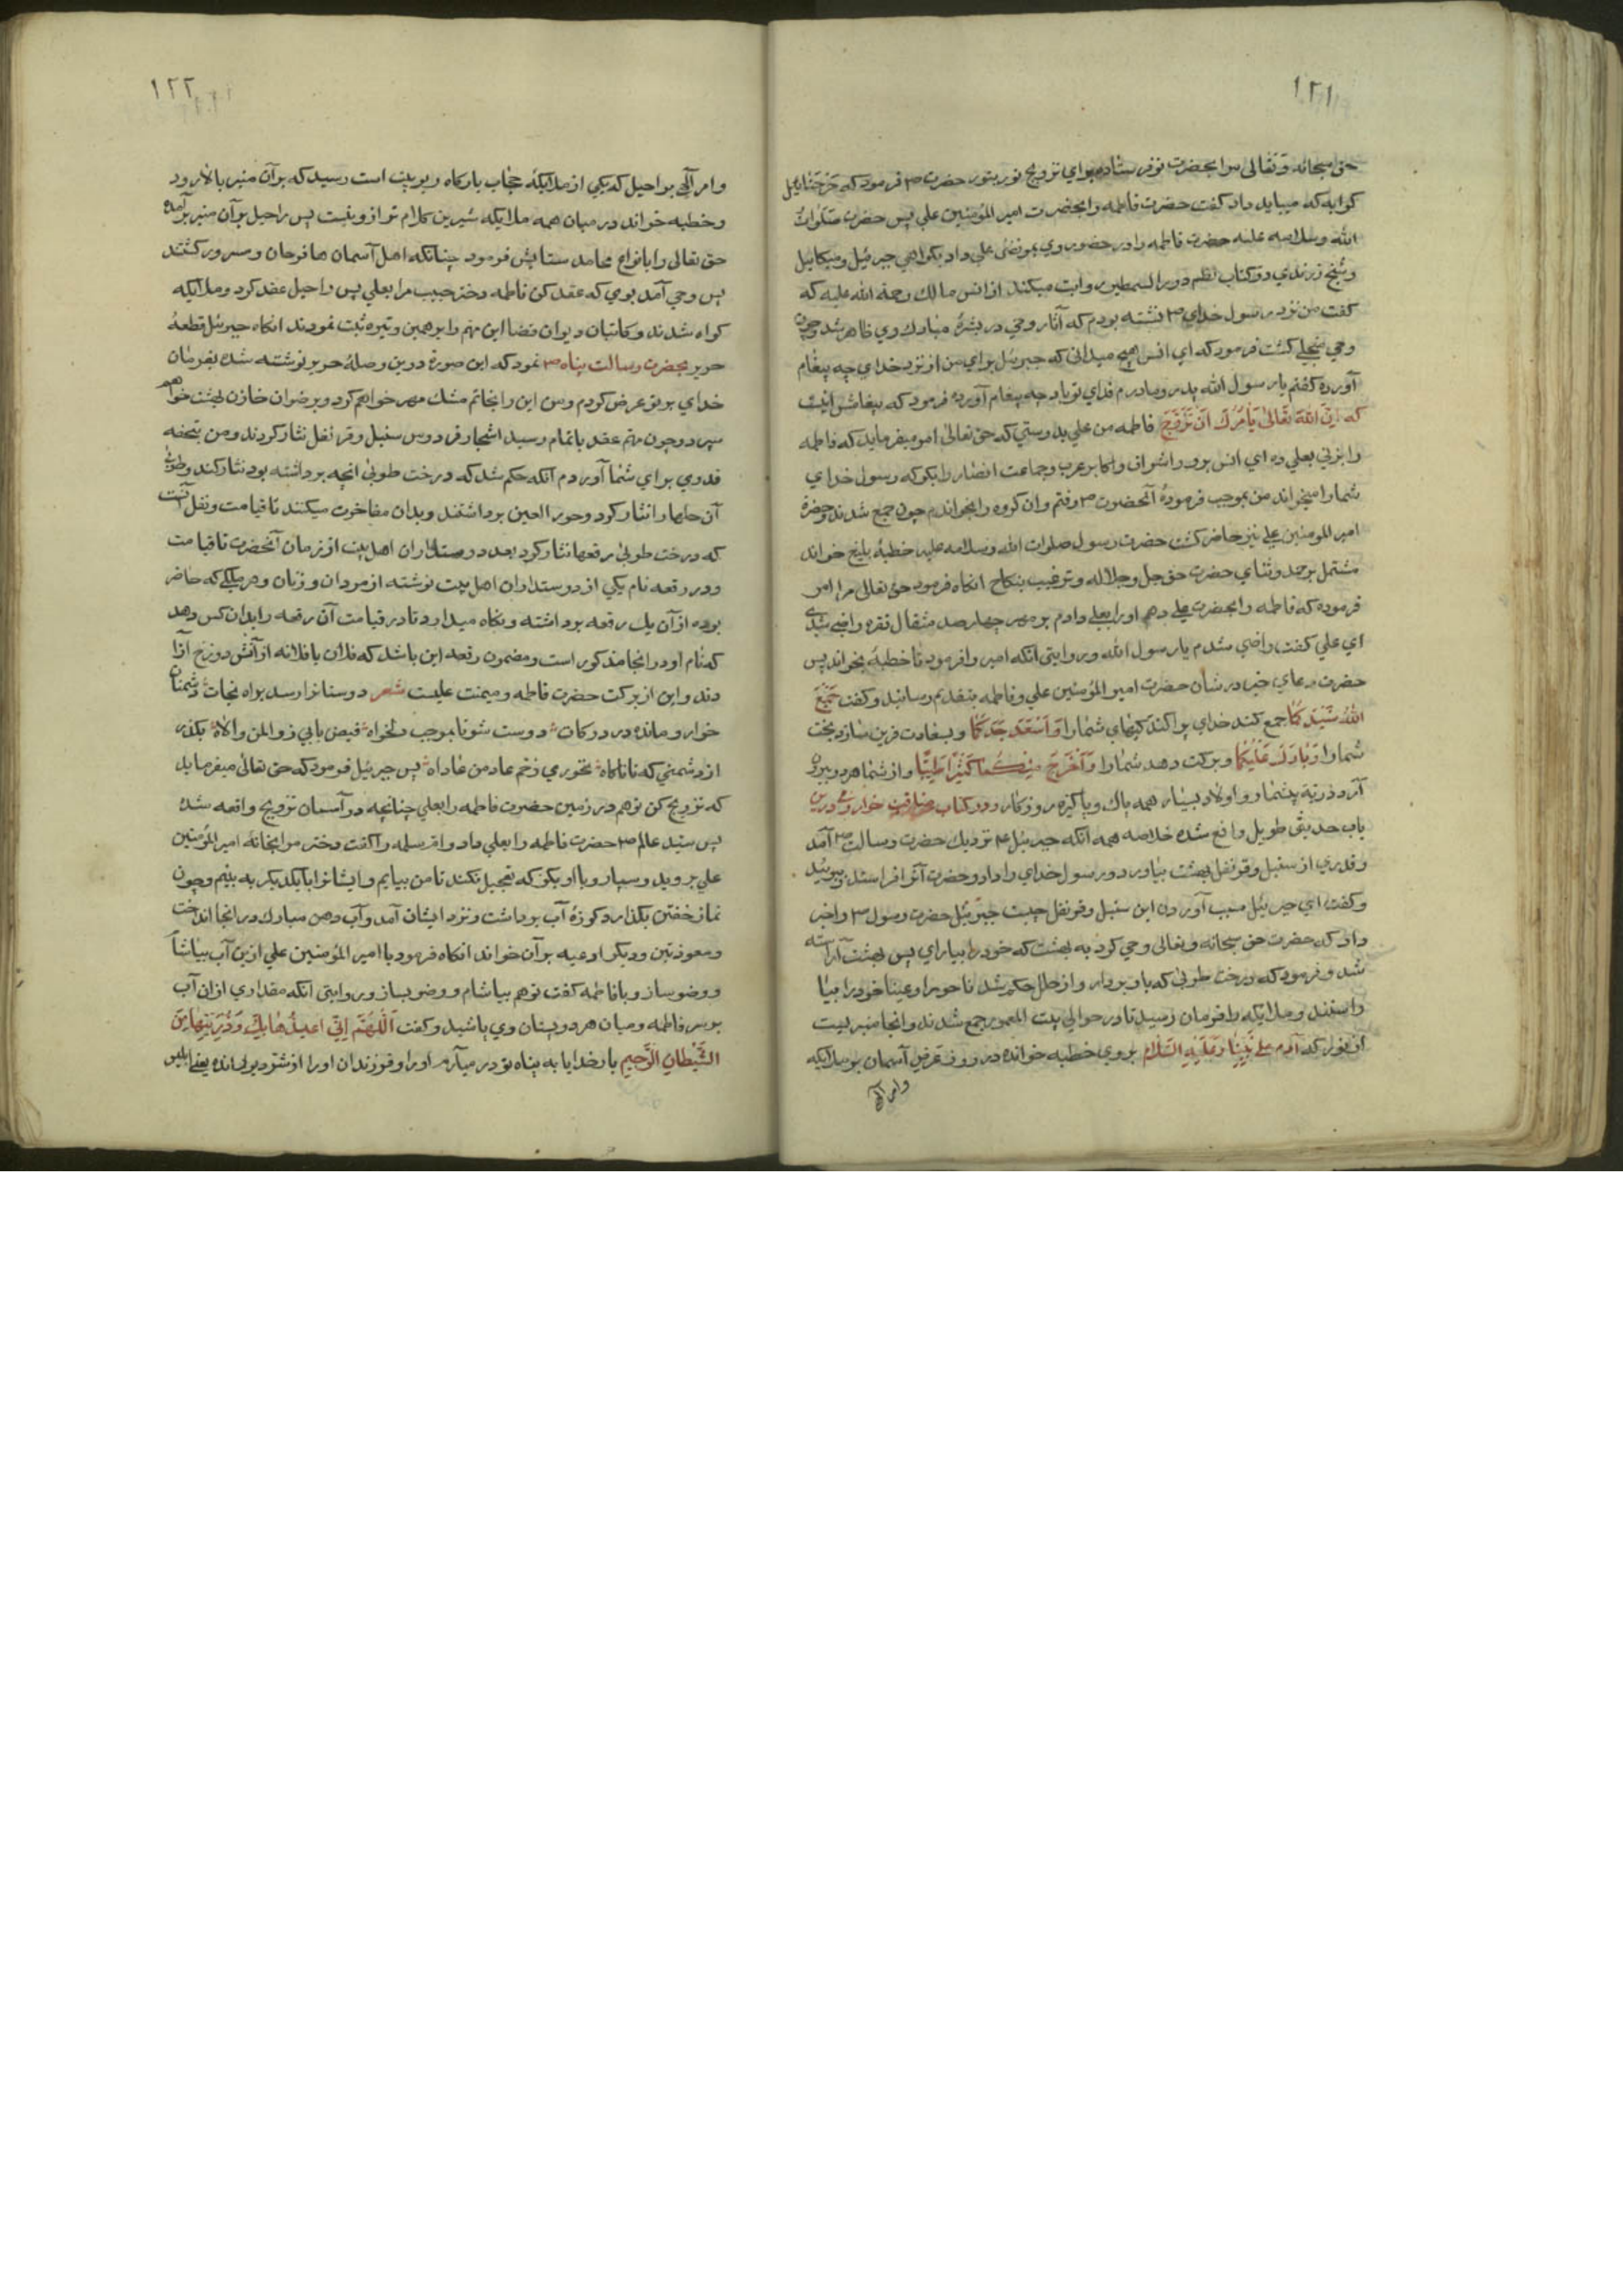 ١٢١
حق سبحانه و تعالی مرا بحضرت تو فرستاده برای تزویج نور بنور حضرت ص فرمود که
گواه که میباید داد گفت حضرت فاطمه را بحضرت امیر المؤمنین علی پس حضرت صلوات
الله وسلامه علیه حضرت فاطمه را در حضور وی بمرتضی علی داد بگواهی جبرئیل و میکائیل
و شیخ زرندی در کتاب نظم درر السمطین روایت میکند از انس مالک رحمة الله علیه که
گفت من نزد رسول خدای ص نشسته بودم که آثار وحی در بشرهٔ مبارک وی ظاهر شد و چون
وحی منجلی گشت فرمود که ای انس هیچ میدانی که جبرئیل برای من از نزد خدای چه پیغام
آورده گفتم یا رسول الله پدر و مادرم فدای تو باد چه پیغام آورده فرمود که پیغامش اینست
که اِنَّ اللهَ تَعَالیٰ یَأمُرُكَ اَن تُزَوِّجَ فاطمه من علی بدرستی که حق تعالی امر میفرماید که فاطمه
را بزنی بعلی ده ای انس برو و اشراف و اکابر عرب و جماعت انصار را بگو که رسول خدای
شما را میخواند من بموجب فرمودهٔ آنحضرت ص رفتم و ان گروه را بخواندم چون جمع شدند و حضرة
امیر المومنین علی نیز حاضر گشت حضرت رسول صلوات الله وسلامه علیه خطبهٔ بلیغ خواند
مشتمل بر حمد و ثنای حضرت حق جل و جلاله و ترغیب بنکاح انکاه فرمود حق تعالی مرا امر
فرموده که فاطمه را بحضرت علی دهم او را بعلی دادم بر مهر چهار صد مثقال نقره راضی شدی
ای علی گفت راضی شدم یا رسول الله و روایتی انکه امیر را فرمود تا خطبهٔ بخواند پس
حضرت دعای خیر در شان حضرت امیر المؤمنین علی و فاطمه بتقدیم رسانید و گفت جَمَعَ
اللهُ شَمْلَكُمَا جمع کند خدای پراکندکیهای شما را وَاَسْعَدَ جَدَّكُمَا و بسعادت قرین سازد بخت
شما را وَبَارَكَ عَلَیْكُمَا و برکت دهد شما را وَاَخْرَجَ مِنْكُمَا كَثِیْرًا طَیِّبًا و از شما هر دو بیرون
آرد ذریهٔ بیشمار و اولاد بسیار همه پاک و پاکیزه روزکار و در کتاب مناقب خوارزمی درین
باب حدیثی طویل واقع شده خلاصه همه آنکه جبرئیل ع نزدیک حضرت رسالت ص آمد
و قدری از سنبل و قرنفل بهشت بیاورد و رسول خدای را داد و حضرت آنرا فرا ستد و ببوئید
و گفت ای جبرئیل سبب آوردن این سنبل و قرنفل چیست جبرئیل حضرت رسول ص را خبر
داد که حضرت حق سبحانه و تعالی وحی کرد به بهشت که خود را بیارای پس بهشت آراسته
شد و فرمود که درخت طوبیٰ که باور بردار و از حلل حکم شد تا حورا و عینا خود را بیا
راستند و ملایکه را فرمان رسید تا در حوالی بیت المعمور جمع شدند و انجا منبریست
از نور که آدم علی نَبِیِّنَا وَعَلَیْهِ السَّلَام بر وی خطبه خوانده در روز عرض آسمان بر ملایکه
و امر آلهی
١٢٢
و امر آلهی براحیل که یکی از ملایکهٔ حجاب بارکاه ربوبیت است رسید که بر آن منبر بالا رود
و خطبه خواند در میان همه ملایکه شیرین کلام تر از و نیست پس راحیل بر آن منبر برآمده
حق تعالی را بانواع محامد ستایش فرمود چنانکه اهل آسمان ها فرحان و مسرور گشتند
پس وحی آمد بوی که عقد کن فاطمه دختر حبیب مرا بعلی پس راحیل عقد کرد و ملایکه
کواه شدند و کاتبان دیوان قضا این مهم را بر همین وتیره ثبت نمودند انکاه جبرئیل قطعهٔ
حریر بحضرت رسالت پناه ص نمود که این صورة درین وصلهٔ حریر نوشته شده بفرمان
خدای بر تو عرض کردم و من این را بخاتم مشک مهر خواهم کرد و برضوان خازن بهشت خواهم
سپرد و چون مهم عقد باتمام رسید اشجار فردوس سنبل و قرنفل نثار کردند و من بتحفه
قدری برای شما آوردم آنکه حکم شد که درخت طوبیٰ انچه برداشته بود نثار کند و طوبیٰ
آن حلها را نثار کرد و حور العین برداشتند و بدان مفاخرت میکنند تا قیامت و نقل آنست
که درخت طوبیٰ رقعها نثار کرد بعدد دوستداران اهل بیت از زمان آنحضرت تا قیامت
و در رقعه نام یکی از دوستداران اهل بیت نوشته از مردان و زنان و هر ملکی که حاضر
بوده از آن یک رقعه برداشته و نکاه میدارد تا در قیامت آن رقعه را بدان کس دهد
که نام او در انجا مذکور است و مضمون رقعه این باشد که فلان یا فلانه از آتش دوزخ آزا
دند و این از برکت حضرت فاطمه و میمنت علیست شعر دوستانرا رسد براه نجات دشمنان
خوار و مانده در درکات دوست شو تا بموجب دلخواه فیض یابی ز وال من والاه بکذر
از دشمنی که تا ناکاه نخوری زخم عاد من عاداه پس جبرئیل فرمود که حق تعالی میفرماید
که تزویج کن تو هم در زمین حضرت فاطمه را بعلی چنانچه در آسمان تزویج واقعه شده
پس سید عالم ص حضرت فاطمه را بعلی داد و ام سلمه را گفت دختر مرا بخانهٔ امیر المؤمنین
علی بر وید و سپار و با او بگو که تعجیل نکند تا من بیایم و ایشانرا با یکدیکر به بینم و چون
نماز خفتن بگذارد کوزهٔ آب برداشت و نزد ایشان آمد و آب دهن مبارک در انجا انداخت
و معوذتین و دیگر ادعیه بر آن خواند انکاه فرمود با امیر المؤمنین علی ازین آب بیاشام
و وضو ساز و با فاطمه گفت تو هم بیاشام و وضو بساز و روایتی انکه مقداری از ان آب
بر سر فاطمه و میان هر دو پستان وی پاشید و گفت اَللّٰهُمَّ اِنِّی اُعِیذُهَا بِكَ وَذُرِّیَّتَهَا مِنَ
الشَّیْطَانِ الرَّجِیمِ بار خدایا به پناه تو در میآرم او را و فرزندان او را از شر دیو رانده یعنی ابلیس